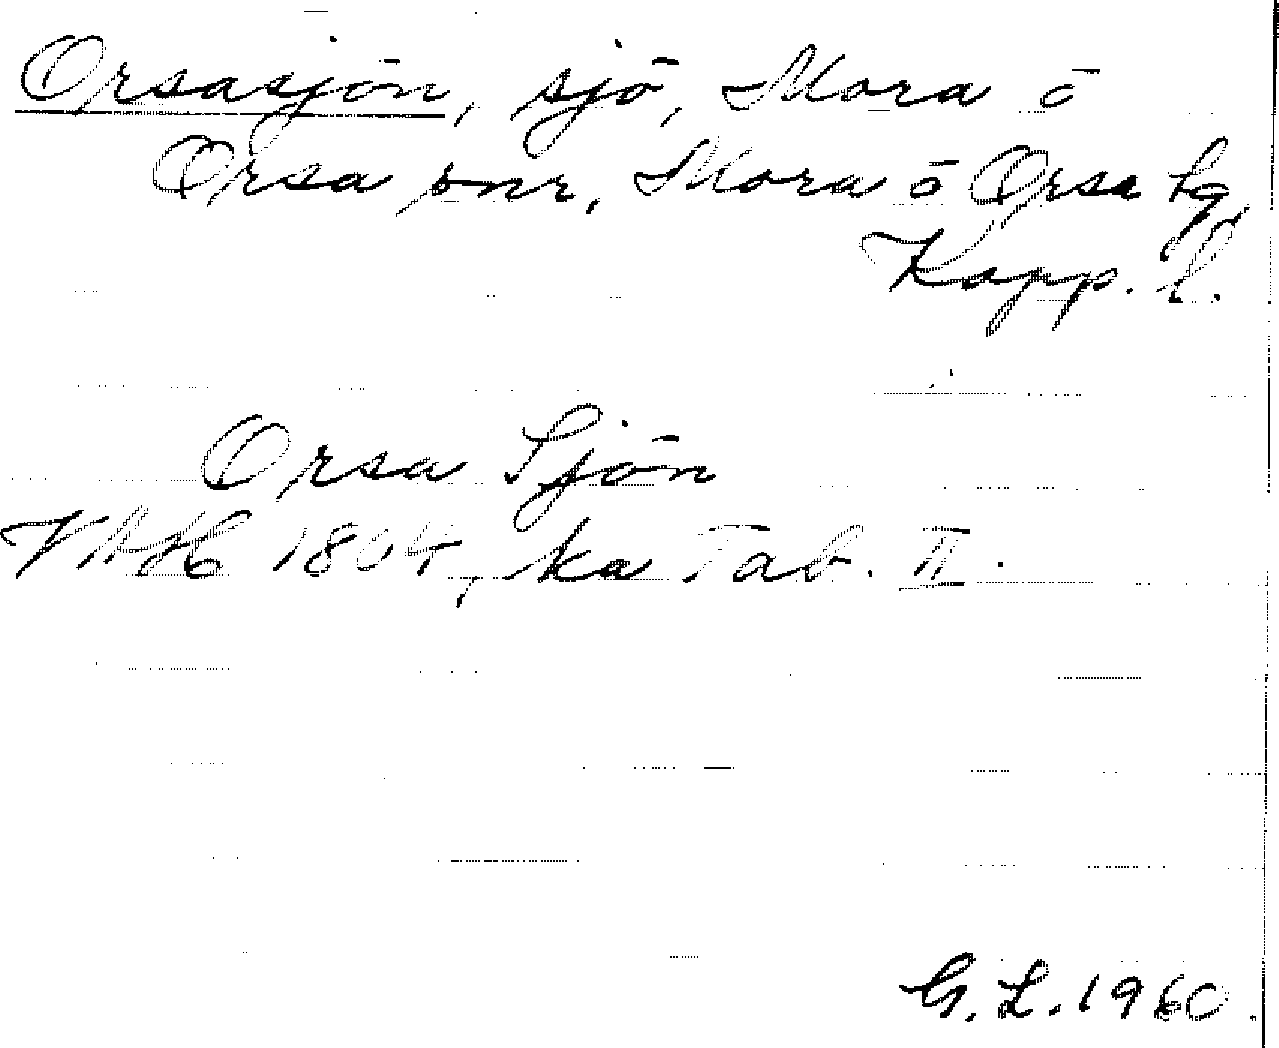 Orsasjön, sjö, Mora o
Orsa snr, Mora o Orsa tg,
Kopp. l.
Orsa Sjön
VAH 1804, ka Tab. II.
G. L. 1960.